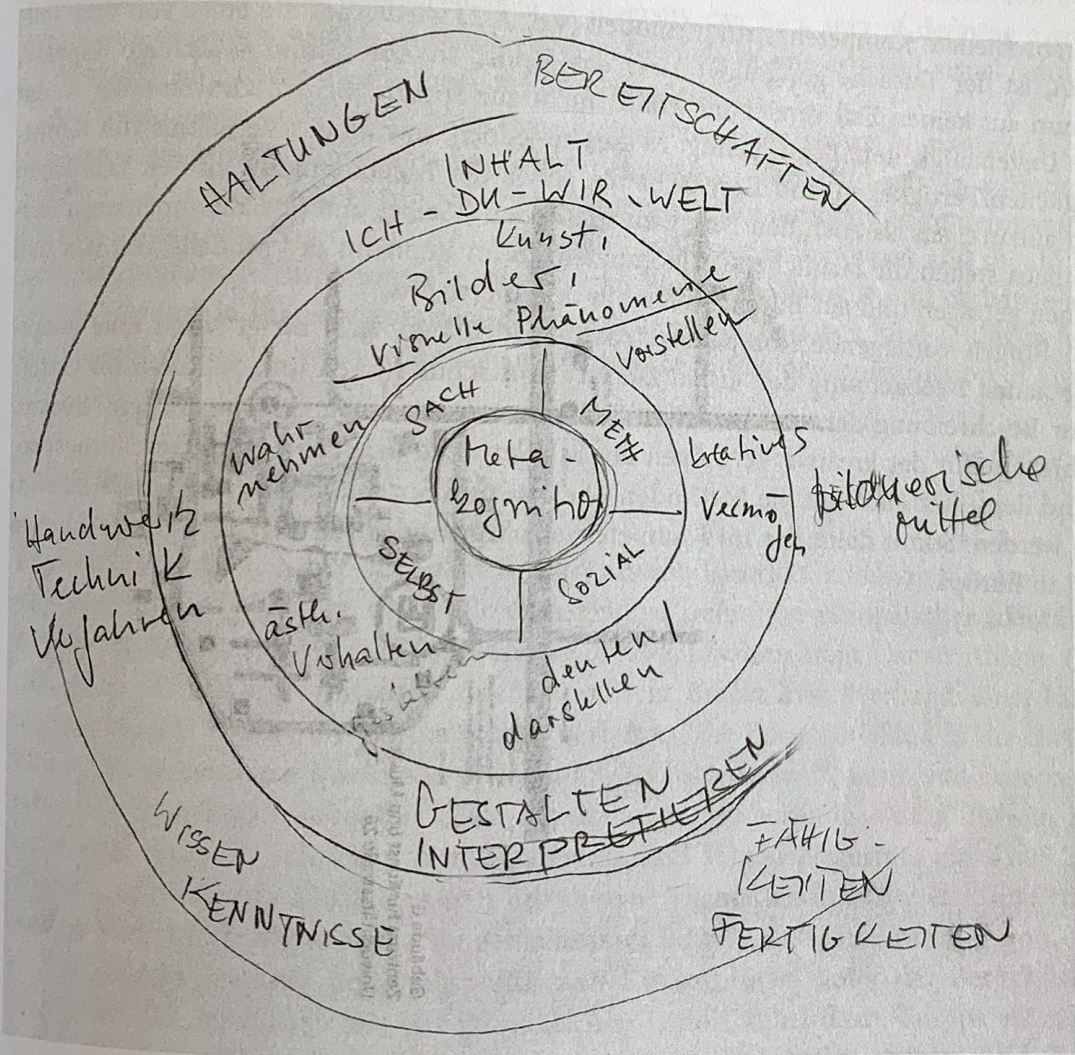 HALTUNGEN
BEREITSCHAFTEN
INHALT
ICH - DU - WIR, WELT
Kunst,
Bilder,
visuelle Phänomene
vorstellen
wahr
nehmen
SACH
METH
Meta-
kognition
kreatives
Vermö-
gen
bildnerische
Mittel
Handwerk
Technik
Verfahren
SELBST
SOZIAL
ästh.
Verhalten
denten
darstellen
GESTALTEN
INTERPRETIEREN
WISSEN
KENNTNISSE
FÄHIG-
KEITEN
FERTIGKEITEN